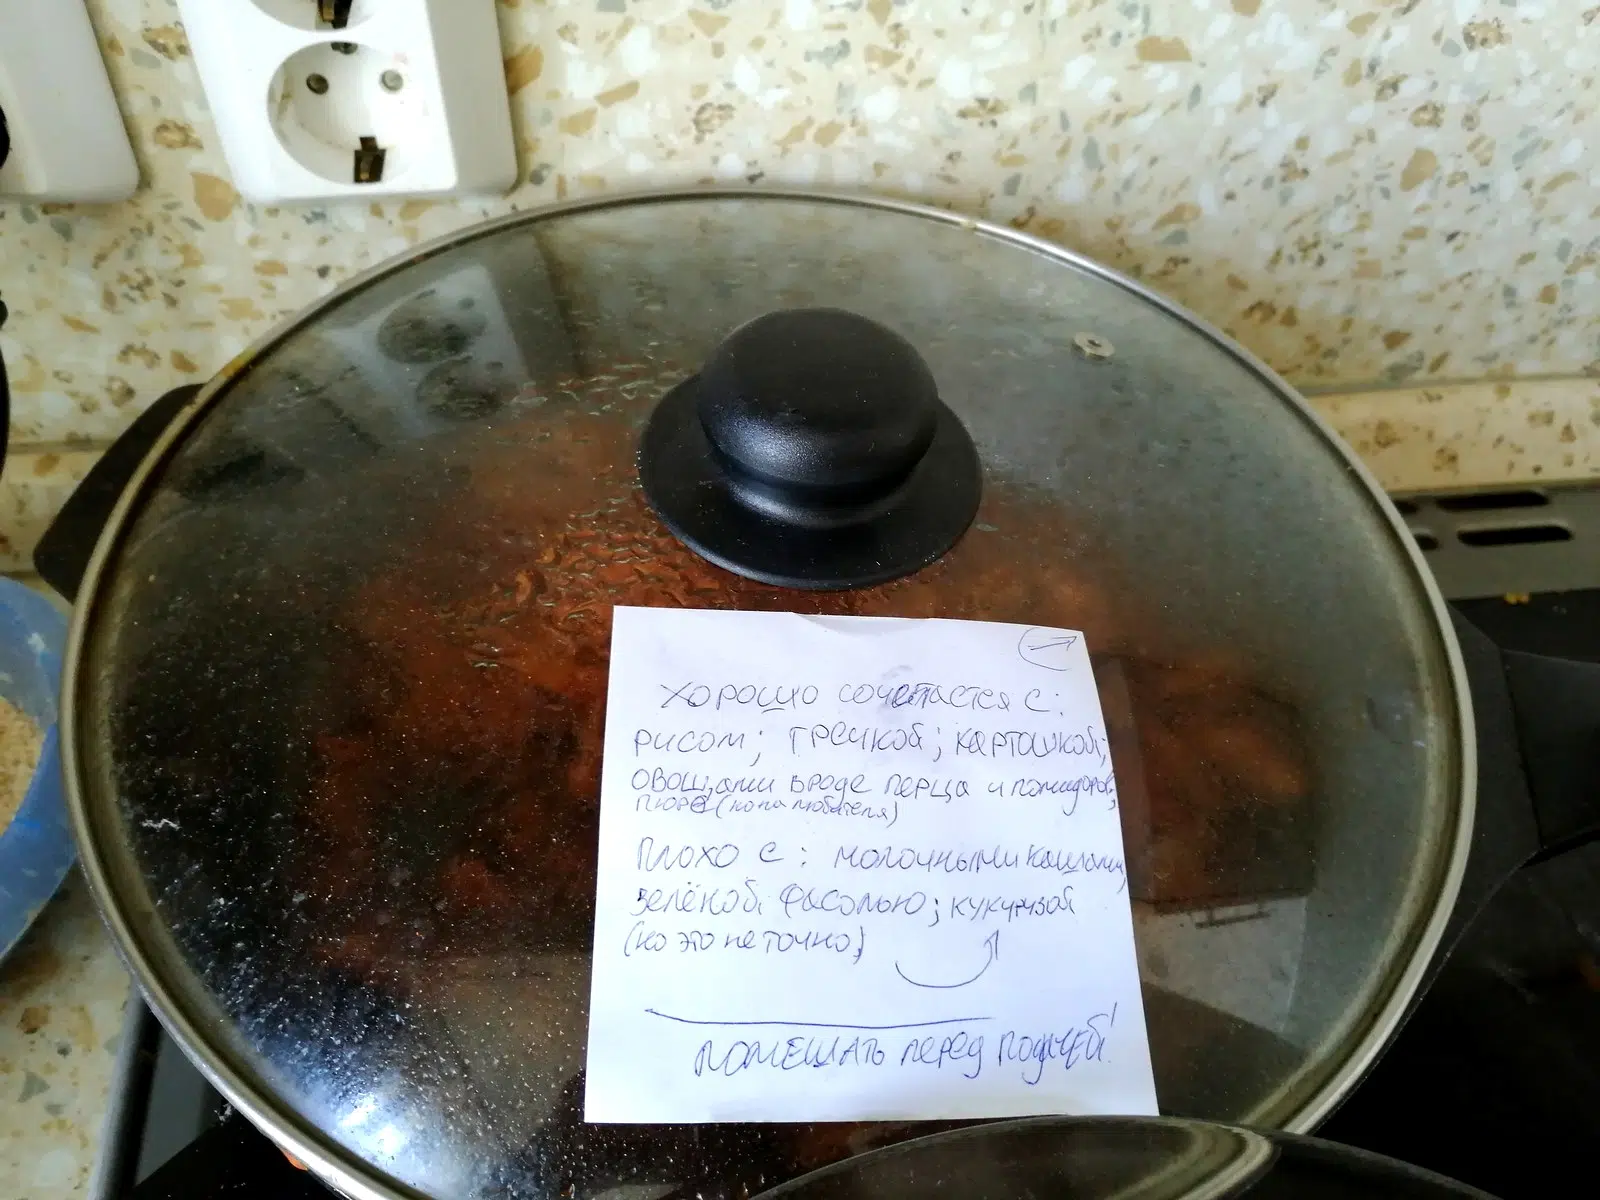 хорошо сочетастся с:
рисом; гречкой; картошкой;
овощами вроде перца и помидоров;
пюре (но на любителя)
плохо с: молочными кашами,
зелёной фасолью; кукурузой
(но это не точно)
помешать перед подачей!